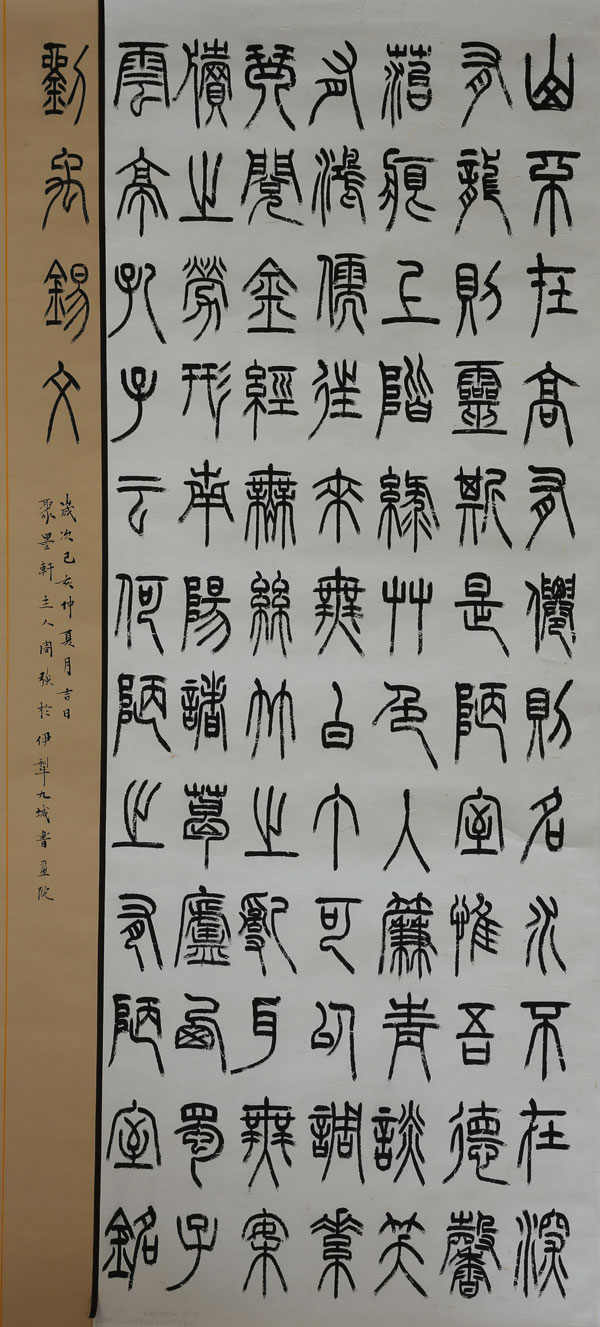 山不在高有僊則名水不在深
有龍則靈斯是陋室惟吾德馨
菭痕上階綠艸色入簾青談笑
有鴻儒往來無白丁可以調素
琴閱金經無絲竹之亂耳無案
牘之勞形南陽諸葛廬西蜀子
雲亭孔子云何陋之有陋室銘
劉禹錫文
歲次己亥仲夏月吉日
聚墨軒主人周強於伊犁九城書画院